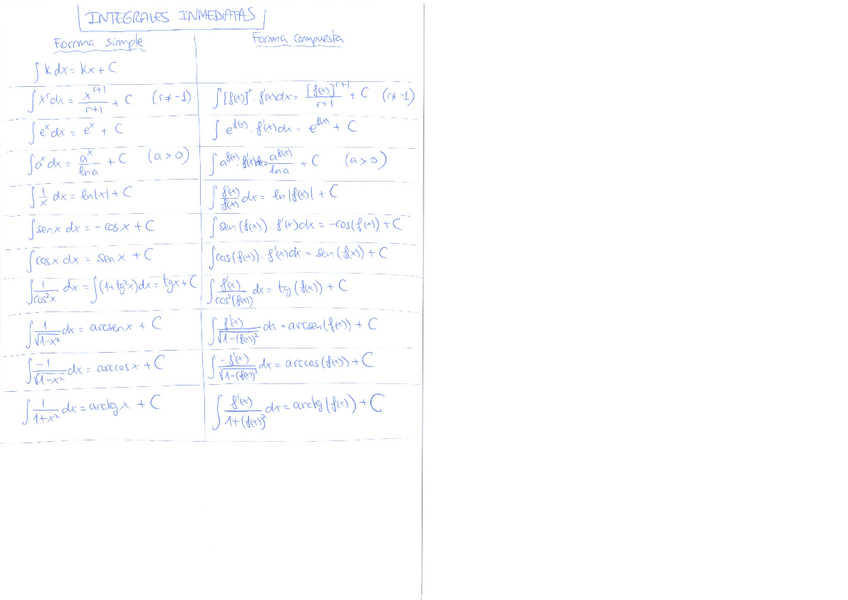 INTEGRALES INMEDIATAS
Forma simple Forma compuesta
∫ k dx = kx + C
∫ x^r dx = x^(r+1)/(r+1) + C (r ≠ -1) ∫ [f(x)]^r · f'(x) dx = [f(x)]^(r+1)/(r+1) + C (r ≠ -1)
∫ e^x dx = e^x + C ∫ e^f(x) · f'(x) dx = e^f(x) + C
∫ a^x dx = a^x/ln a + C (a > 0) ∫ a^f(x) · f'(x) dx = a^f(x)/ln a + C (a > 0)
∫ 1/x dx = ln|x| + C ∫ f'(x)/f(x) dx = ln|f(x)| + C
∫ sen x dx = - cos x + C ∫ sen(f(x)) · f'(x) dx = -cos(f(x)) + C
∫ cos x dx = sen x + C ∫ cos(f(x)) · f'(x) dx = sen(f(x)) + C
∫ 1/cos²x dx = ∫ (1 + tg²x) dx = tg x + C ∫ f'(x)/cos²(f(x)) dx = tg(f(x)) + C
∫ 1/√(1-x²) dx = arcsen x + C ∫ f'(x)/√(1-(f(x))²) dx = arcsen(f(x)) + C
∫ -1/√(1-x²) dx = arccos x + C ∫ -f'(x)/√(1-(f(x))²) dx = arccos(f(x)) + C
∫ 1/(1+x²) dx = arctg x + C ∫ f'(x)/(1+(f(x))²) dx = arctg(f(x)) + C